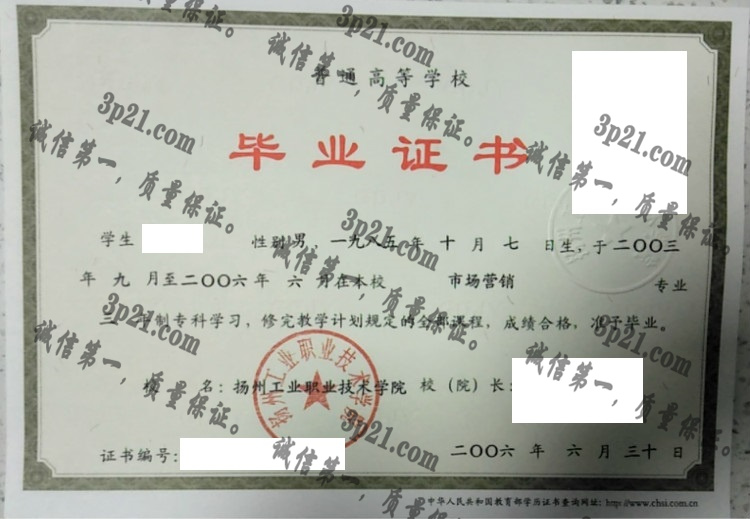 普通高等学校
毕业证书
学生 性别 男，一九八五年 十月 七 日生，于二〇〇三
年 九 月至二〇〇六年 六 月在本校 市场营销 专业
三 年制专科学习，修完教学计划规定的全部课程，成绩合格，准予毕业。
校 名：扬州工业职业技术学院 校（院）长：
扬州工业职业技术学院
证书编号： 二〇〇六年 六月三十日
中华人民共和国教育部学历证书查询网址：http://www.chsi.com.cn
3p21.com
诚信第一，质量保证。
3p21.com
诚信第一，质量保证。
3p21.com
诚信第一，质量保证。
3p21.com
诚信第一，质量保证。
3p21.com
诚信第一，质量保证。
3p21.com
诚信第一，质量保证。
3p21.com
诚信第一，质量保证。
3p21.com